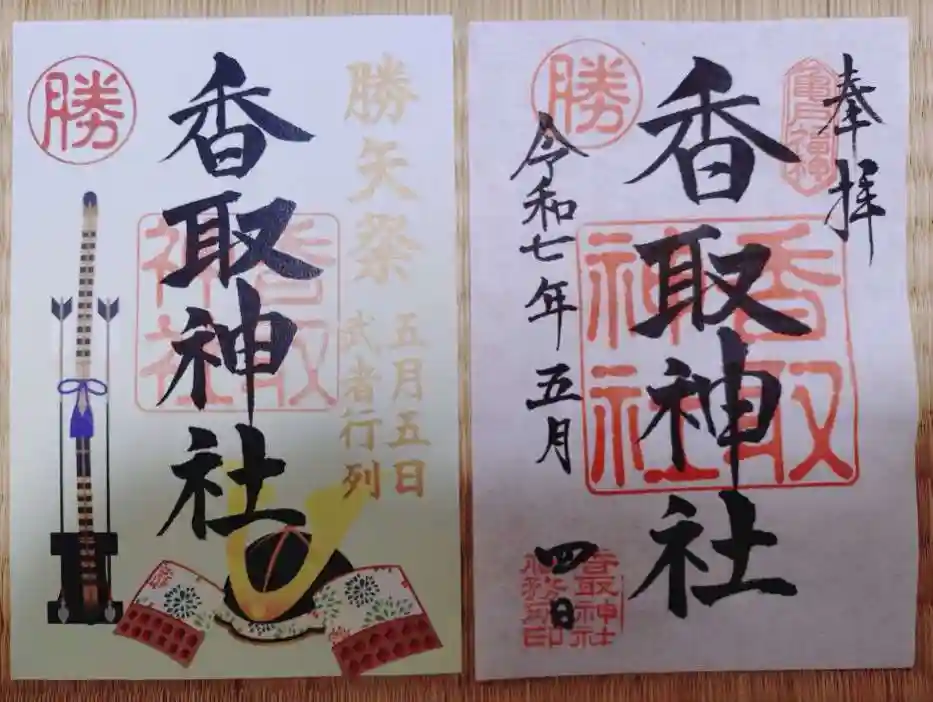 勝矢祭
五月五日
武者行列
香取神社
勝
香取
神社
奉拝
亀戸
香取神社
勝
令和七年五月
四日
香取
神社
香取神社